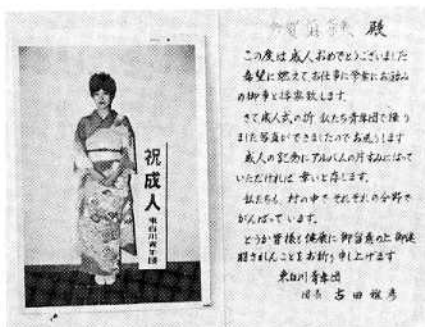 祝成人
東白川青年団
殿
この度は成人おめでとうございました
希望に燃えてお仕事に学業にお励み
の御事と拝察致します。
さて成人式の折 私たち青年団で撮り
ました写真ができましたのでお送りします
成人の記念にアルバムの片すみにはって
いただければ 幸いと存じます。
私たちも、村の中で それぞれの分野で
がんばっています。
どうか皆様も健康に御留意の上 御活
躍されんことをお祈り申し上げます
東白川青年団
団長 吉田雅彦